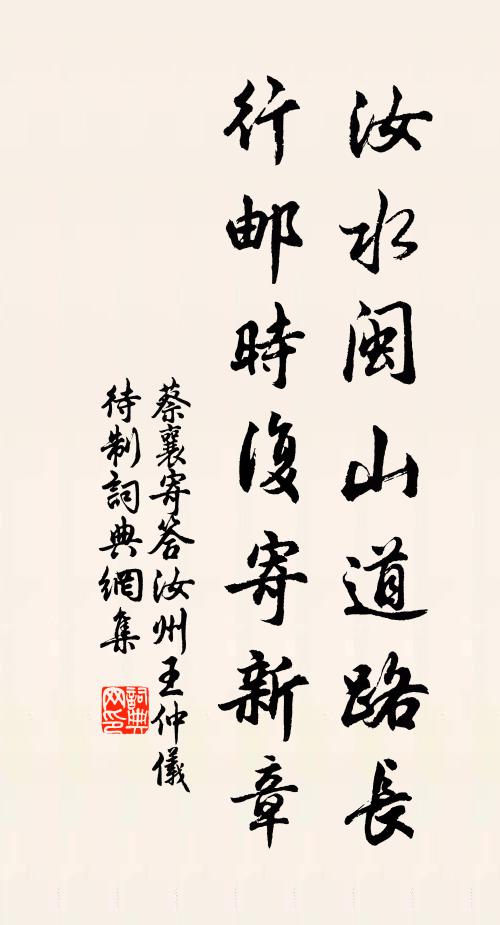 汝水閩山道路長
行邮時復寄新章
蔡襄寄答汝州王仲儀
待制詞典網集
詞典网印